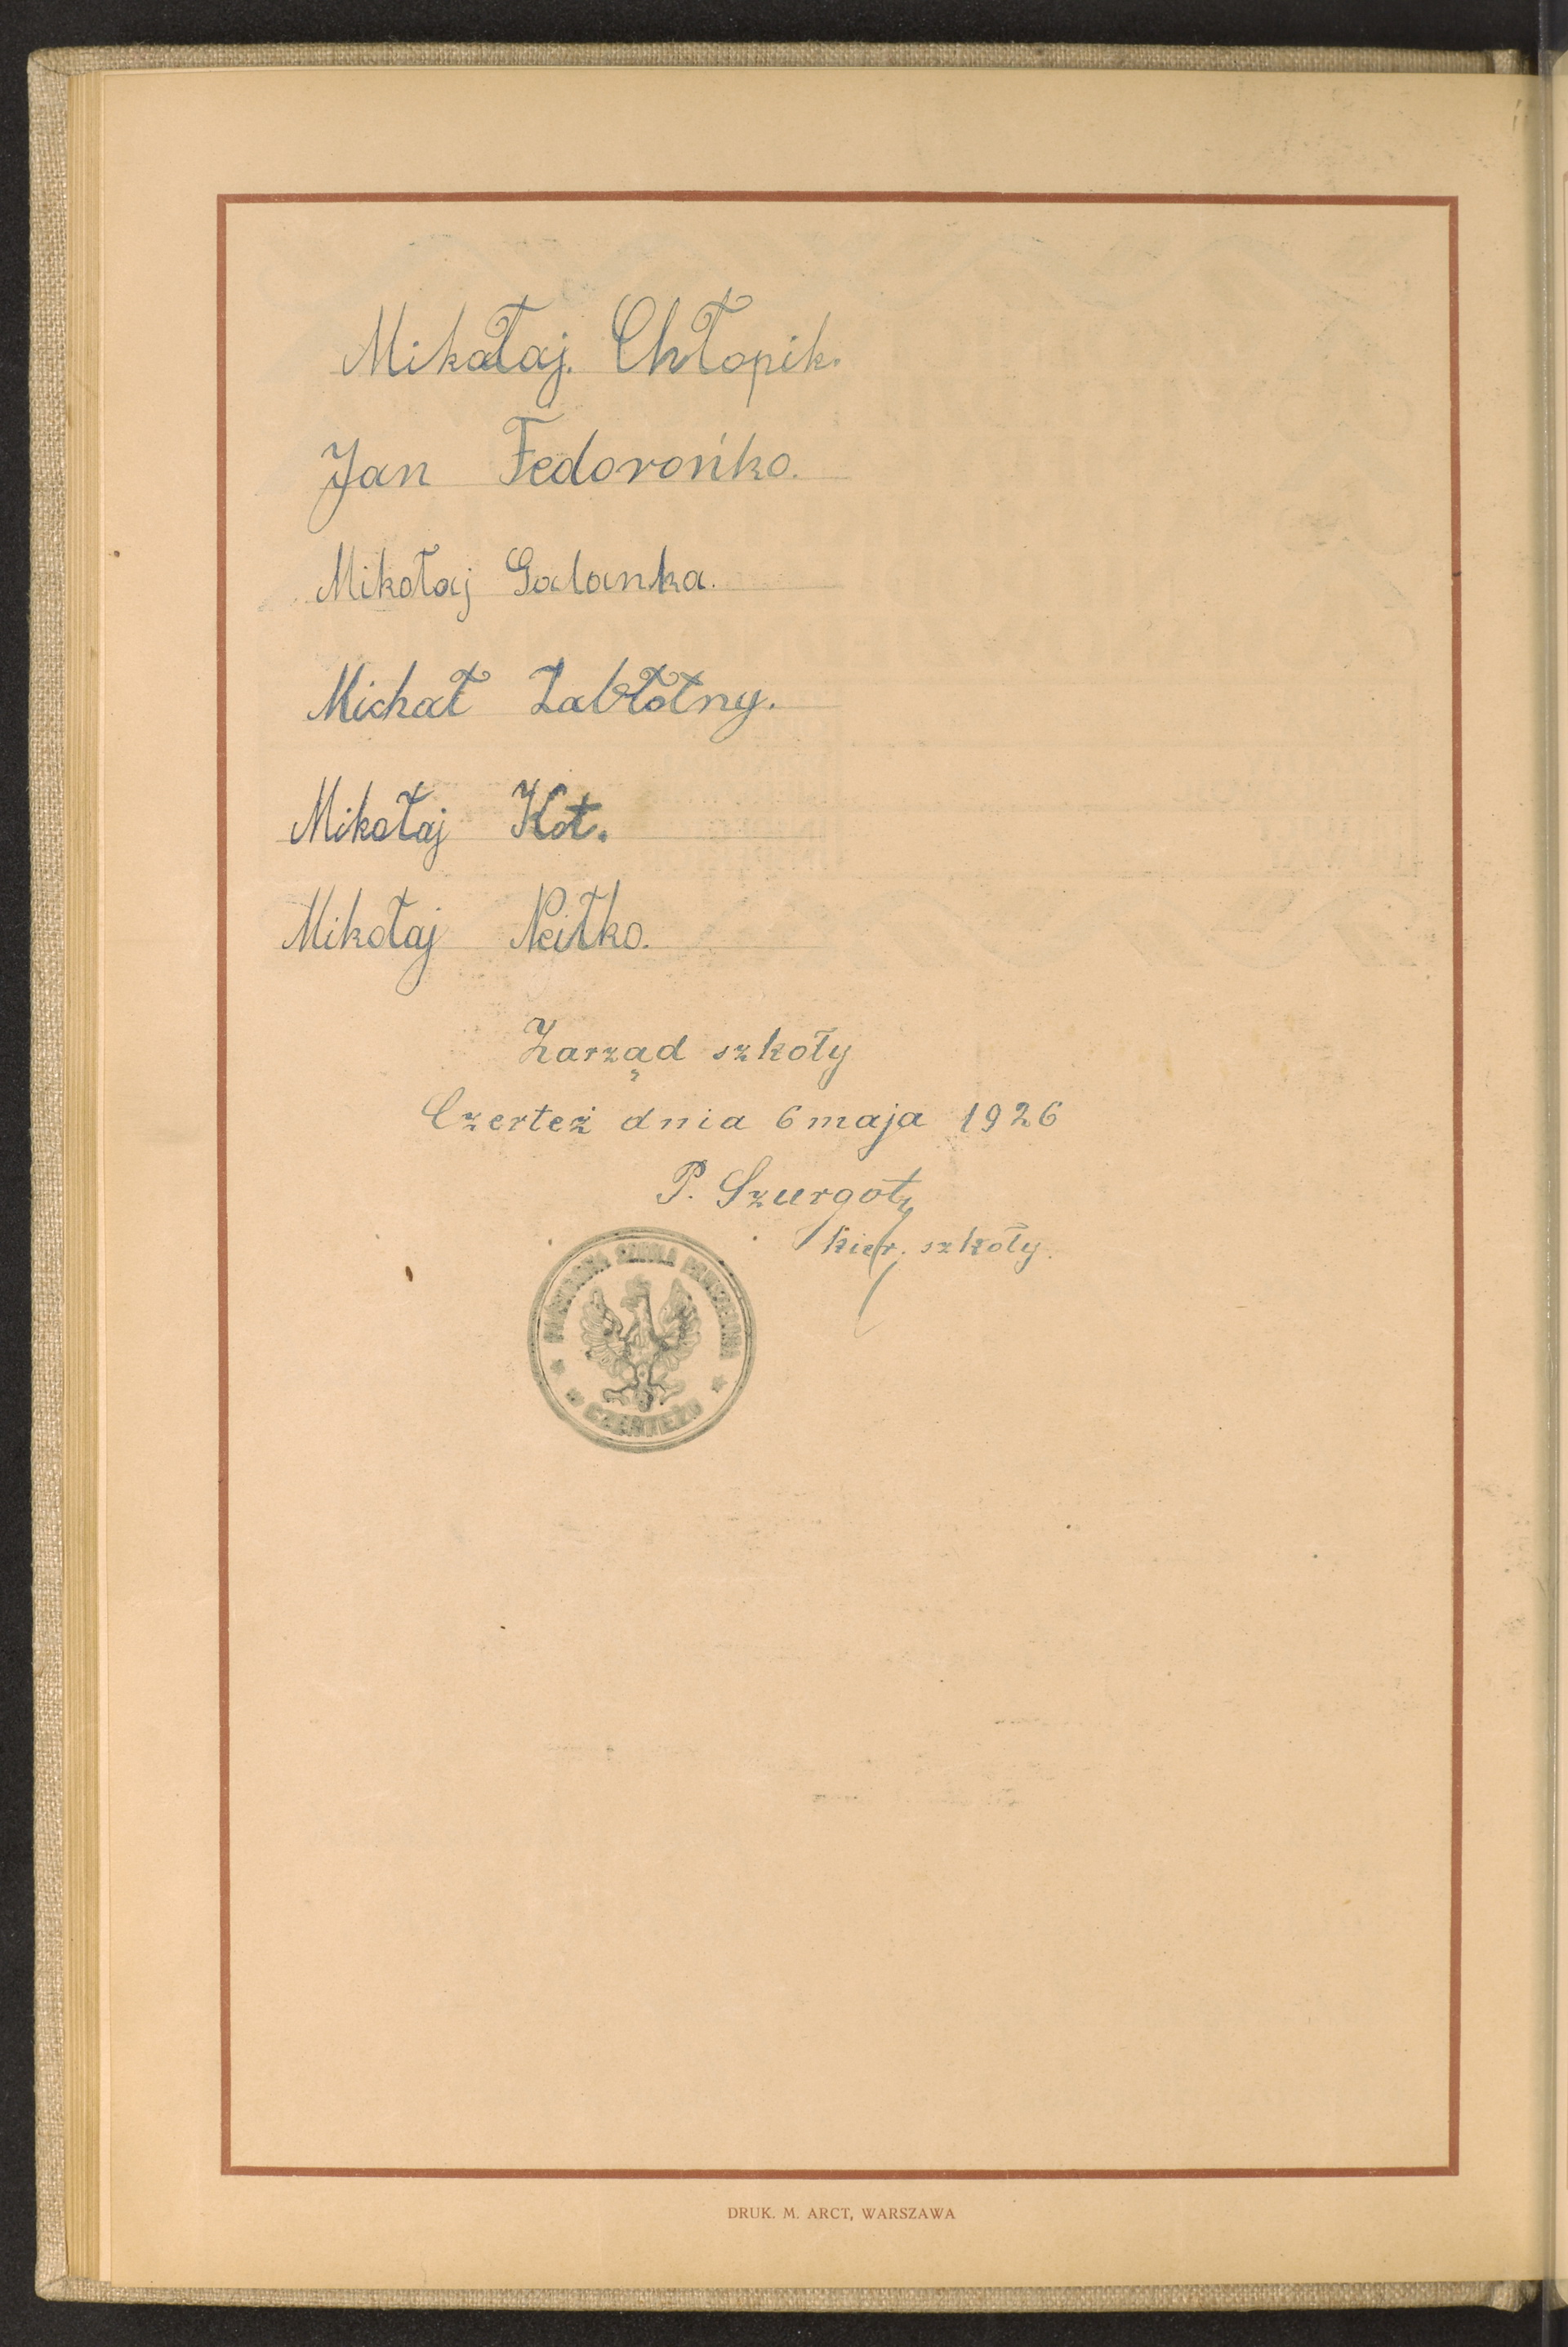 Mikołaj. Chłopik.
Jan Fedorońko.
Mikołaj Galanka.
Michał Zabłotny.
Mikołaj Kot.
Mikołaj
Zarząd szkoły
Czerteż dnia 6 maja 1926
P. Szurgot
kier. szkoły.
PAŃSTWOWA SZKOŁA POWSZECHNA
w CZERTEŻU
DRUK. M. ARCT, WARSZAWA